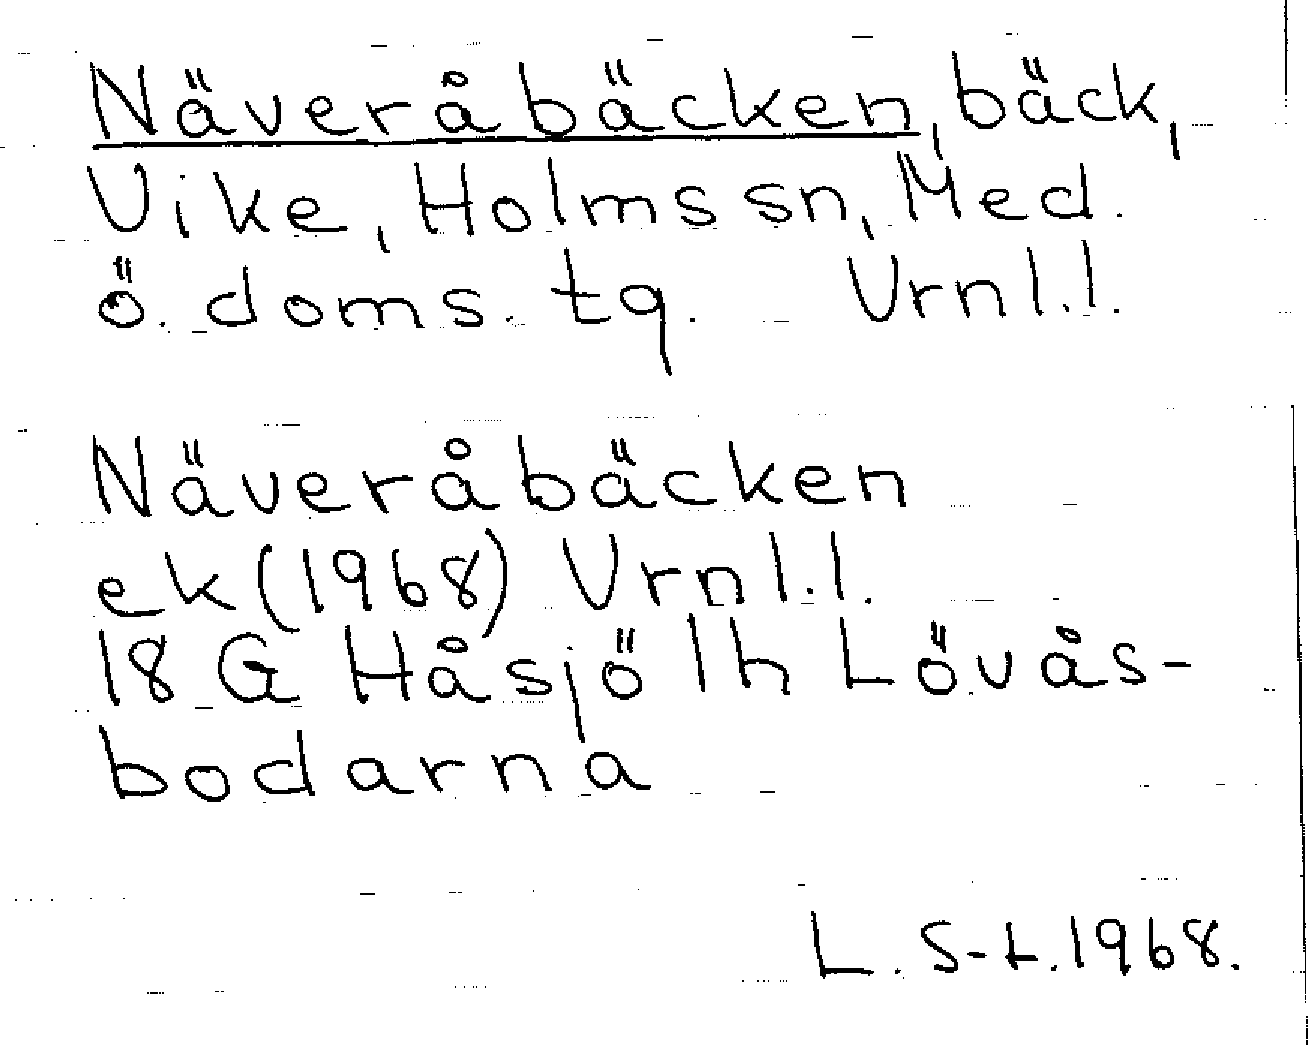 Näveråbäcken, bäck,
Vike, Holms sn, Med.
ö. doms. tg. Vrnl.l.
Näveråbäcken
ek (1968) Vrnl.l.
18 G Håsjö 1h Lövås-
bodarna
L. S-t. 1968.